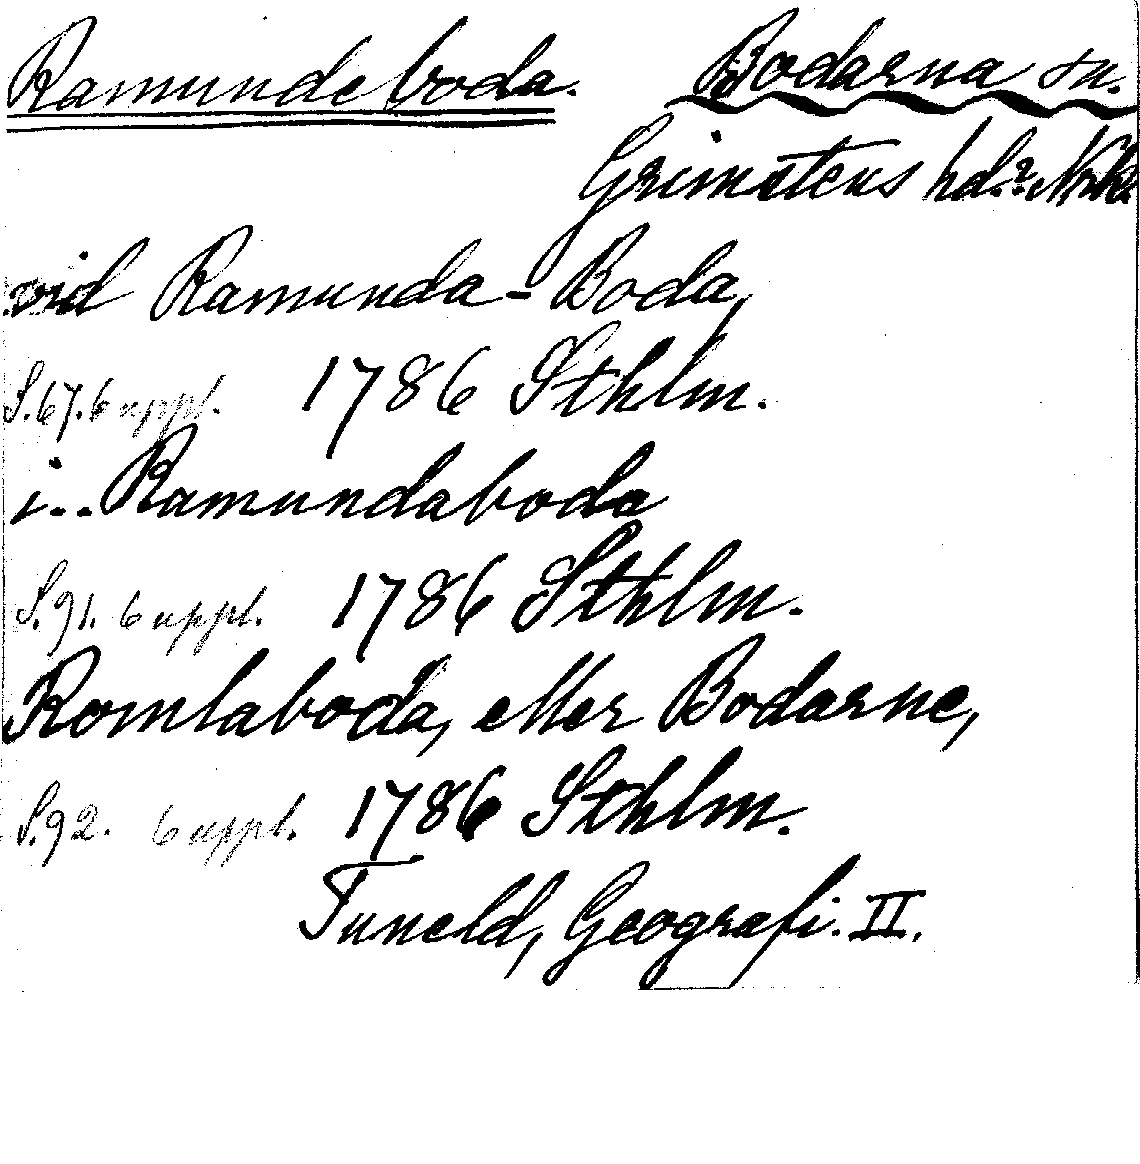 Ramundeboda. Bodarna sn.
Grimstens hd. Nrk.
vid Ramunda-Boda,
S.67. 6 uppl. 1786 Sthlm.
i.. Ramundaboda
S.91. 6 uppl. 1786 Sthlm.
Romlaboda, eller Bodarne,
S.92. 6 uppl. 1786 Sthlm.
Tuneld, Geografi. II.